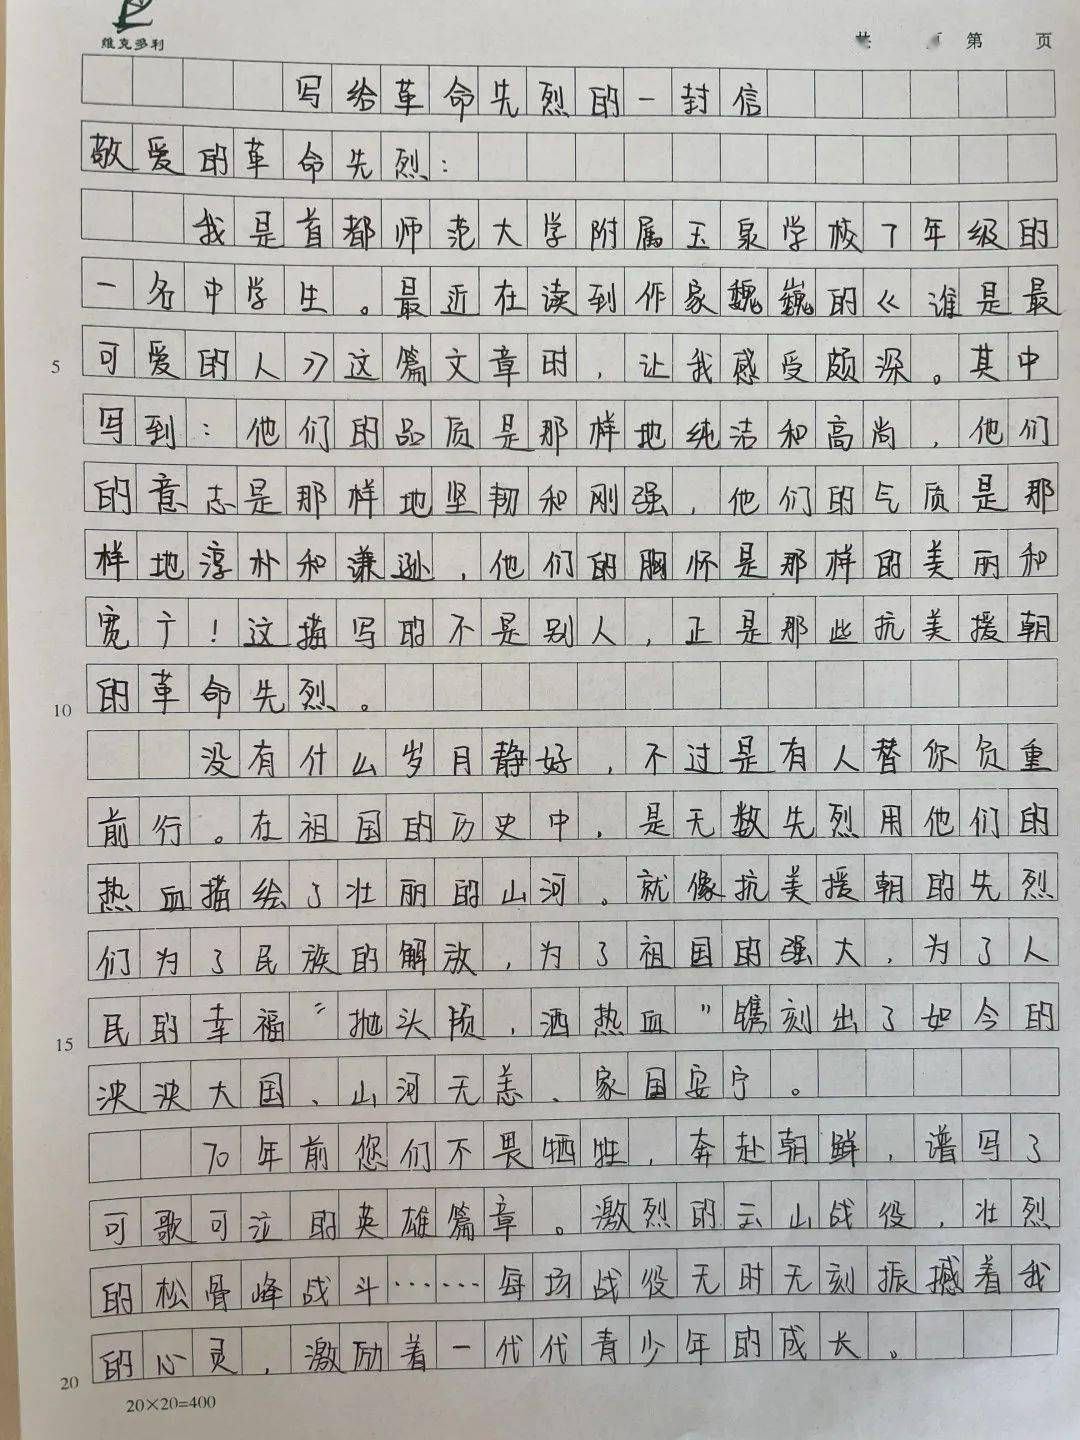 维克多利
共 页 第 页
写给革命先烈的一封信
敬爱的革命先烈：
我是首都师范大学附属玉泉学校7年级的
一名中学生。最近在读到作家魏巍的《谁是最
5 可爱的人》这篇文章时，让我感受颇深。其中
写到：他们的品质是那样地纯洁和高尚，他们
的意志是那样地坚韧和刚强，他们的气质是那
样地淳朴和谦逊，他们的胸怀是那样的美丽和
宽广！这描写的不是别人，正是那些抗美援朝
10 的革命先烈。
没有什么岁月静好，不过是有人替你负重
前行。在祖国的历史中，是无数先烈用他们的
热血描绘了壮丽的山河。就像抗美援朝的先烈
们为了民族的解放，为了祖国的强大，为了人
15 民的幸福“抛头颅，洒热血”镌刻出了如今的
泱泱大国、山河无恙、家国安宁。
70年前您们不畏牺牲，奔赴朝鲜，谱写了
可歌可泣的英雄篇章。激烈的云山战役，壮烈
的松骨峰战斗……每场战役无时无刻振撼着我
20 的心灵，激励着一代代青少年的成长。
20×20=400